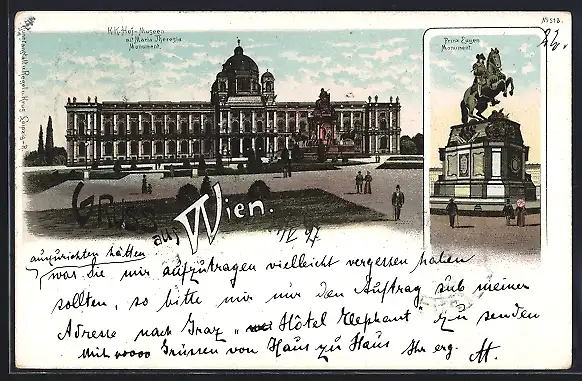 K.K. Hof-Museen
mit Maria Theresia
Monument.
Prinz Eugen
Monument.
№ 518.
Gruss
aus Wien.
auszurichten hätten
was Sie mir aufzutragen vielleicht vergessen haben
sollten, so bitte mir nur den Auftrag sub meiner
Adresse nach Graz „ Hôtel Elephant" zu senden
Mit Grüssen von Haus zu Haus Ihr erg.